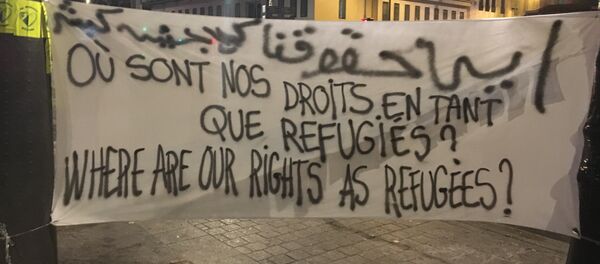 اين حقوقنا
OÙ SONT NOS DROITS EN TANT
QUE REFUGIÉS?
WHERE ARE OUR RIGHTS AS REFUGEES?